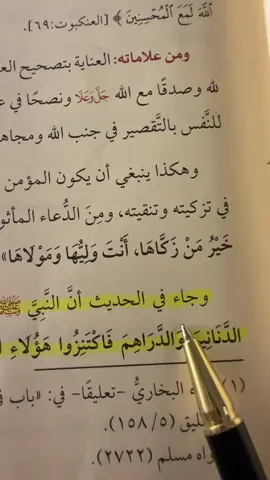 ٱللَّهَ لَمَعَ ٱلْمُحْسِنِينَ ﴾ [العنكبوت: ٦٩].
ومن علاماته: العناية بتصحيح
لله وصدقًا مع الله جَلَّ وَعَلَا ونصحًا في
للنَّفس بالتَّقصير في جنب الله
وهكذا ينبغي أن يكون المؤمن
في تزكيته وتنقيته، ومِنَ الدُّعاء
خَيْرُ مَنْ زَكَّاهَا، أَنْتَ وَلِيُّهَا وَمَوْلَاهَا»
وجاء في الحديث أنَّ النَّبِيَّ ﷺ
الدَّنَانِيرَ وَالدَّرَاهِمَ فَاكْتَنِزُوا هَؤُلَاءِ
(١) البخاريُّ -تعليقًا- في: «باب
(٥/ ١٥٨).
مسلم (٢٧٢٢).